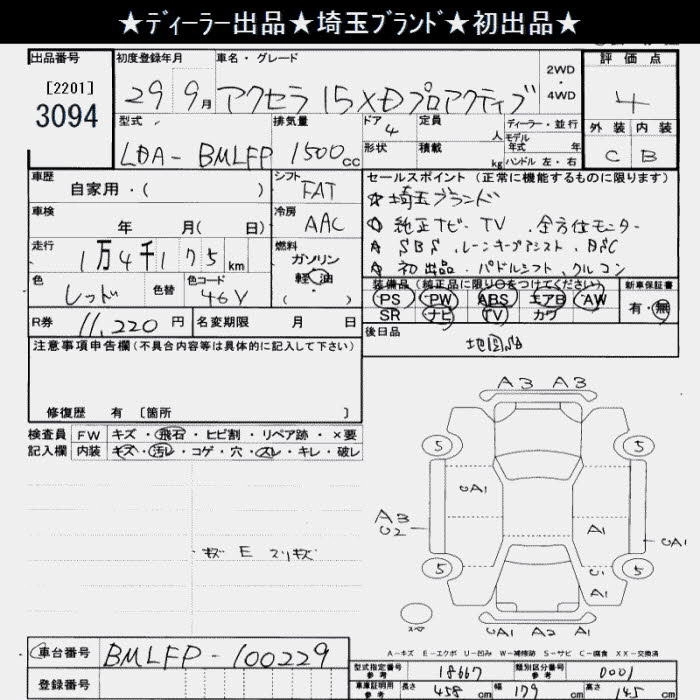 ★ディーラー出品★埼玉ブランド★初出品★
出品番号 初度登録年月 車名・グレード 評価点
[2201] 2WD・4WD
3094 29 9月 アクセラ 15XDプロアクティブ 4
型式 排気量 ドア 4 定員 人 ディーラー・並行 外装 内装
モデル年式 年
LDA-BMLFP 1500cc 形状 積載 kg ハンドル 左・右 C B
車歴 シフト セールスポイント (正常に機能するものに限ります)
自家用・( ) FAT ☆埼玉ブランド
車検 冷房 純正ナビ・TV 全方位モニター
年 月( 日) AAC SBS レーンキープアシスト BSC
走行 燃料 初出品・パドルシフト クルコン
1万4千175km ガソリン 軽油 ・( )
装備品 (純正品に限り○をつけてください) 新車保証書
色 レッド 色替 色コード 46V PS PW ABS エアB AW 有・無
SR ナビ TV カワ
R券 11,220円 名変期限 月 日 後日品
注意事項申告欄(不具合内容等は具体的に記入して下さい) 地図SD
修復歴 有 [箇所 ]
検査員 FW キズ・飛石・ヒビ割・リペア跡・×要
記入欄 内装 キズ・汚レ・コゲ・穴・スレ・キレ・破レ
A3 A3
5 5
UA1
A3
U2 A1 UA1
5 U1 5
A1
キズ E スリキズ
UA1 A2 A1
A-キズ E-エクボ U-凹み W-補修跡 S-サビ C-腐食 XX-交換済
車台番号 BMLFP-100229
型式指定番号 参考 18667 類別区分番号 参考 0001
登録番号 車庫証明用 参考 長さ 458cm 幅 179cm 高さ 145cm